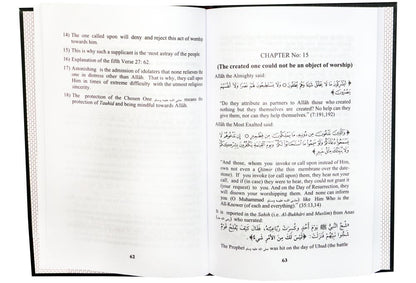 14) The one called upon will deny and reject this act of worship
towards him.
15) This is why such a supplicant is the most astray of the people.
16) Explanation of the fifth Verse 27: 62.
17) Astonishing is the admission of idolaters that none relieves the
one in distress other than Allâh. That is why, they call upon
Him in times of extreme difficulty with the utmost religious
sincerity.
18) The protection of the Chosen One صلى الله عليه وسلم means the
protection of Tauhid and being mindful towards Allâh.
62
CHAPTER No: 15
(The created one could not be an object of worship)
Allâh the Almighty said:
﴿أَيُشْرِكُونَ مَا لَا يَخْلُقُ شَيْئًا وَهُمْ يُخْلَقُونَ ۝ وَلَا يَسْتَطِيعُونَ لَهُمْ نَصْرًا وَلَا أَنْفُسَهُمْ
يَنْصُرُونَ﴾
"Do they attribute as partners to Allâh those who created
nothing but they themselves are created? No help can they
give them, nor can they help themselves." (7:191,192)
Allâh the Most Exalted said:
"And those, whom you invoke or call upon instead of Him,
own not even a Qitmir (the thin membrane over the date-
stone). If you invoke (or call upon) them, they hear not your
call, and if (in case) they were to hear, they could not grant it
(your request) to you. And on the Day of Resurrection, they
will disown your worshipping them. And none can inform
you (O Muhammad صلى الله عليه وسلم) like Him Who is the
All-Knower (of each and everything)." (35:13,14)
It is reported in the Sahih (i.e. Al-Bukhâri and Muslim) from Anas
who narrated:
The Prophet صلى الله عليه وسلم was hit on the day of Uhud (the battle
63